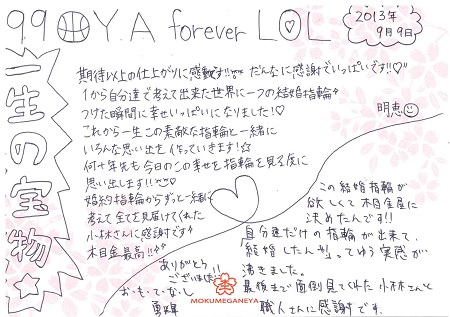 99 Y.A forever LOL
2013年
9月9日
一生の宝物☆
期待以上の仕上がりに感動です!! だんなに感謝でいっぱいです!!♡
1から自分達で考えて出来た世界に一つの結婚指輪
つけた瞬間に幸せいっぱいになりました!♡
これから一生この素敵な指輪と一緒に
いろんな思い出を作っていきます!☆
何十年先も今日のこの幸せを指輪を見る度に
思い出します!!
婚約指輪からずっと一緒に
考えて全てを見届けてくれた
小林さんに感謝です
木目金最高!!
ありがとう
ございました!!
お・も・て・な・し
明恵
この結婚指輪が
欲しくて木目金屋に
決めたんです!!
自分達だけの指輪が出来て、
結婚したんやってゆう実感が
沸きました。
最後まで面倒見てくれた小林さんと
職人さんに感謝です。
MOKUMEGANEYA